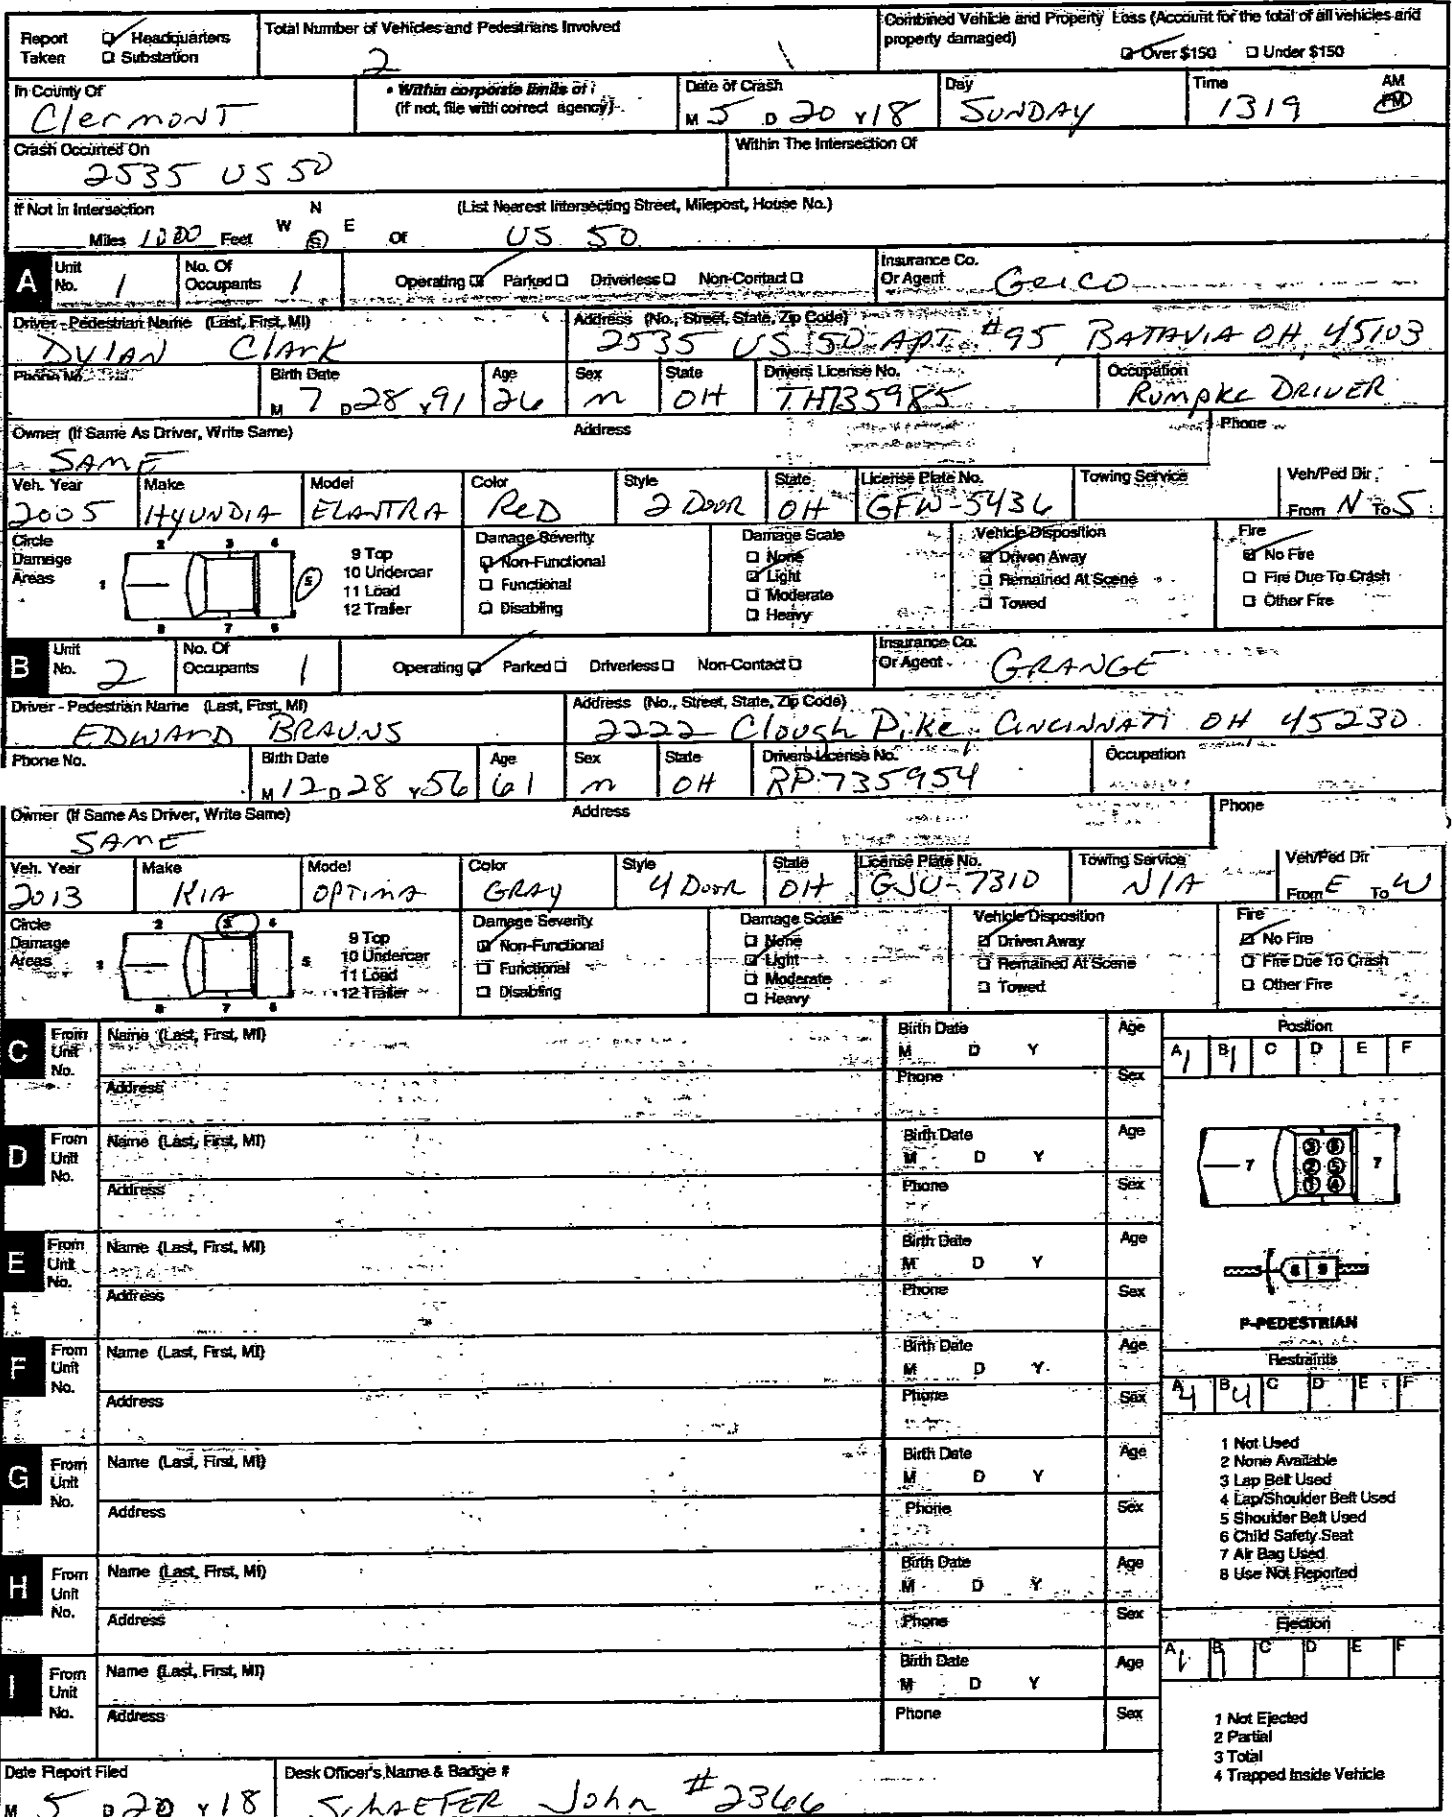 Report Taken ☑ Headquarters ☐ Substation
Total Number of Vehicles and Pedestrians Involved
2
Combined Vehicle and Property Loss (Account for the total of all vehicles and property damaged)
☑ Over $150 ☐ Under $150
In County Of
Clermont
• Within corporate limits of
(if not, file with correct agency)
Date of Crash
M 5 D 20 Y 18
Day
SUNDAY
Time
1319
AM
PM
Crash Occurred On
2535 US 50
Within The Intersection Of
If Not In Intersection
Miles 1000 Feet
N
W S E Of
(List Nearest Intersecting Street, Milepost, House No.)
US 50
A Unit No. 1
No. Of Occupants 1
Operating ☑ Parked ☐ Driverless ☐ Non-Contact ☐
Insurance Co. Or Agent Geico
Driver - Pedestrian Name (Last, First, MI)
DYLAN Clark
Address (No., Street, State, Zip Code)
2535 US 50 APT #95 BATAVIA OH, 45103
Phone No.
Birth Date
M 7 D 28 Y 91
Age
26
Sex
m
State
OH
Drivers License No.
TH735985
Occupation
Rumpke DRIVER
Owner (If Same As Driver, Write Same)
SAME
Address
Phone
Veh. Year
2005
Make
HYUNDIA
Model
ELANTRA
Color
ReD
Style
2 DOOR
State
OH
License Plate No.
GFW-5436
Towing Service
Veh/Ped Dir
From N To S
Circle Damage Areas
1 2 3 4 5 6 7 8
9 Top
10 Undercar
11 Load
12 Trailer
Damage Severity
☑ Non-Functional
☐ Functional
☐ Disabling
Damage Scale
☐ None
☑ Light
☐ Moderate
☐ Heavy
Vehicle Disposition
☑ Driven Away
☐ Remained At Scene
☐ Towed
Fire
☑ No Fire
☐ Fire Due To Crash
☐ Other Fire
B Unit No. 2
No. Of Occupants 1
Operating ☑ Parked ☐ Driverless ☐ Non-Contact ☐
Insurance Co. Or Agent GRANGE
Driver - Pedestrian Name (Last, First, MI)
EDWARD BRAUNS
Address (No., Street, State, Zip Code)
2222 Clough Pike, CINCINNATI OH 45230
Phone No.
Birth Date
M 12 D 28 Y 56
Age
61
Sex
m
State
OH
Drivers License No.
RP735954
Occupation
Owner (If Same As Driver, Write Same)
SAME
Address
Phone
Veh. Year
2013
Make
KIA
Model
OPTIMA
Color
GRAY
Style
4 DOOR
State
OH
License Plate No.
GJU-7310
Towing Service
N/A
Veh/Ped Dir
From E To W
Circle Damage Areas
1 2 3 4 5 6 7 8
9 Top
10 Undercar
11 Load
12 Trailer
Damage Severity
☑ Non-Functional
☐ Functional
☐ Disabling
Damage Scale
☐ None
☑ Light
☐ Moderate
☐ Heavy
Vehicle Disposition
☑ Driven Away
☐ Remained At Scene
☐ Towed
Fire
☑ No Fire
☐ Fire Due To Crash
☐ Other Fire
C From Unit No.
Name (Last, First, MI)
Birth Date
M D Y
Age
Address
Phone
Sex
Position
A 1 B 1 C D E F
D From Unit No.
Name (Last, First, MI)
Birth Date
M D Y
Age
Address
Phone
Sex
7 3 6 2 5 1 4 7
E From Unit No.
Name (Last, First, MI)
Birth Date
M D Y
Age
Address
Phone
Sex
8 9
P-PEDESTRIAN
F From Unit No.
Name (Last, First, MI)
Birth Date
M D Y
Age
Address
Phone
Sex
Restraints
A 4 B 4 C D E F
G From Unit No.
Name (Last, First, MI)
Birth Date
M D Y
Age
Address
Phone
Sex
1 Not Used
2 None Available
3 Lap Belt Used
4 Lap/Shoulder Belt Used
5 Shoulder Belt Used
6 Child Safety Seat
7 Air Bag Used
8 Use Not Reported
H From Unit No.
Name (Last, First, MI)
Birth Date
M D Y
Age
Address
Phone
Sex
Ejection
A 1 B 1 C D E F
I From Unit No.
Name (Last, First, MI)
Birth Date
M D Y
Age
Address
Phone
Sex
1 Not Ejected
2 Partial
3 Total
4 Trapped Inside Vehicle
Date Report Filed
M 5 D 20 Y 18
Desk Officer's Name & Badge #
SCHAEFER John #2366